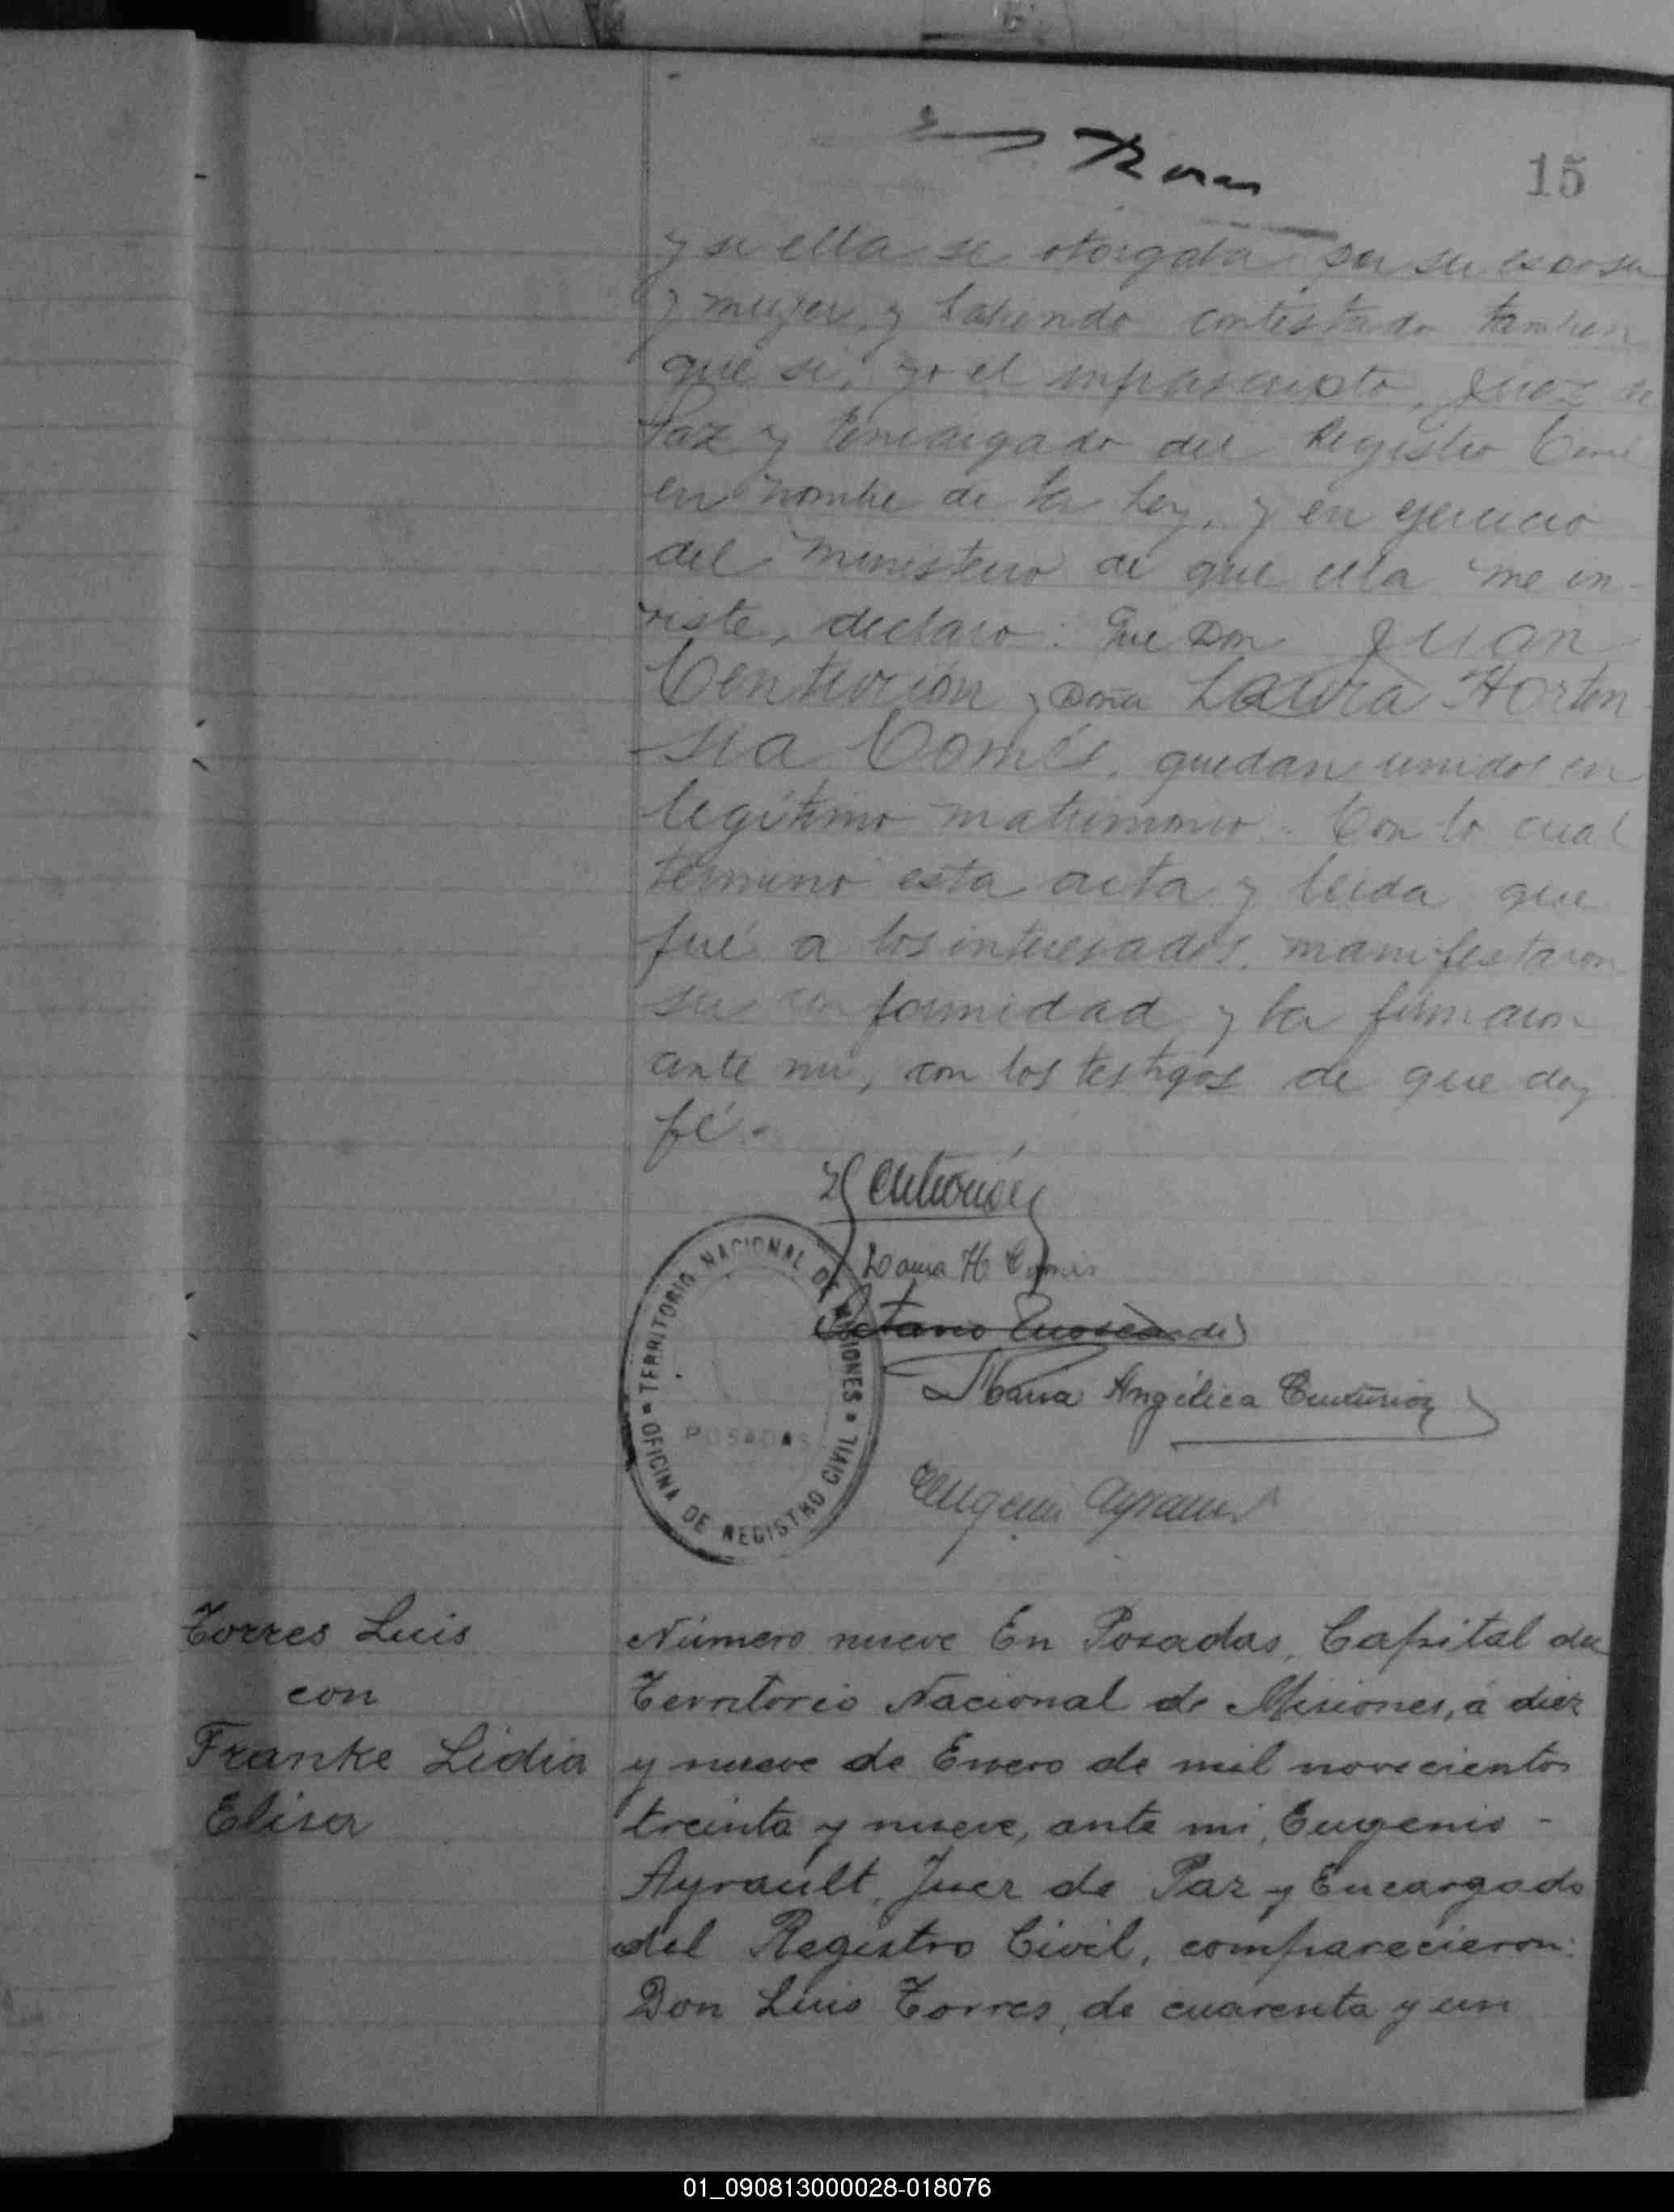 15
y si ella se otorgaba por su esposa
y mujer, y habiendo contestado tambien
que si, yo el infrascripto, Juez de
Paz y Encargado del Registro Civil
en nombre de la Ley, y en ejercicio
del ministerio de que ella me in-
viste, declaro: Que Don Juan
Centurión y Doña Laura Horten-
sia Comés, quedan unidos en
legítimo matrimonio. Con lo cual
termino esta acta y leida que
fué a los interesados, manifestaron
su conformidad y la firmaron
ante mi, con los testigos de que doy
fé.-
Centurión
Laura H Comés
Maria Angélica Centurion
Eugenio Ayrault
TERRITORIO NACIONAL DE MISIONES
POSADAS
OFICINA DE REGISTRO CIVIL
Torres Luis
con
Franke Lidia
Elisa
Número nueve En Posadas, Capital del
Territorio Nacional de Misiones, á diez
y nueve de Enero de mil novecientos
treinta y nueve, ante mi, Eugenio -
Ayrault, Juez de Paz y Encargado
del Registro Civil, comparecieron:
Don Luis Torres, de cuarenta y un
01_090813000028-018076